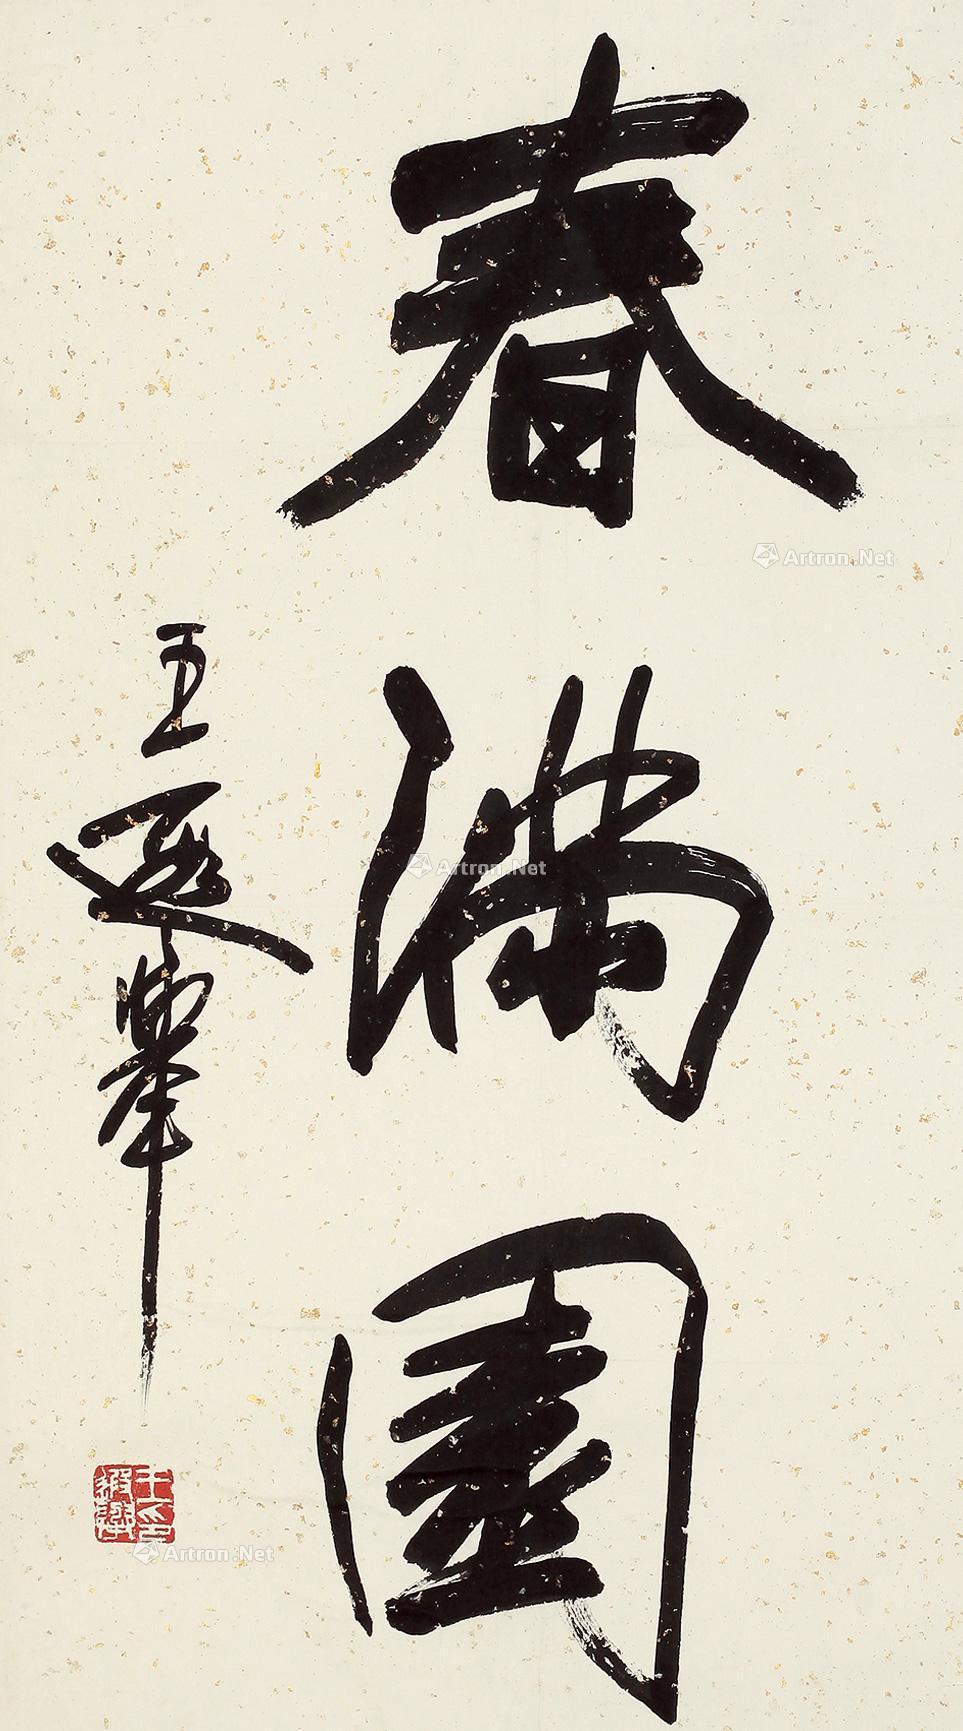 春满园
王遐举
Artron.Net
Artron.Net
Artron.Net